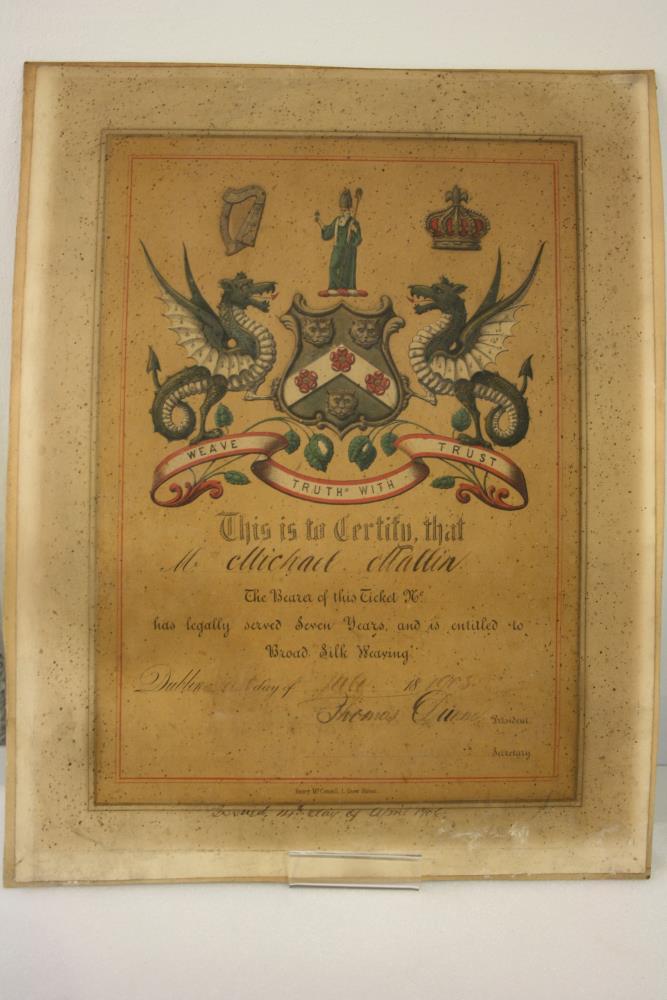 WEAVE TRUTH WITH TRUST
This is to Certify, that
Mr. Michael Mallin
The Bearer of this Ticket No.
has legally served Seven Years, and is entitled to
Broad Silk Weaving
Dublin day of July 18 1903
Thomas Dunne President
Secretary
Henry McConnell,
14th day of April 1906